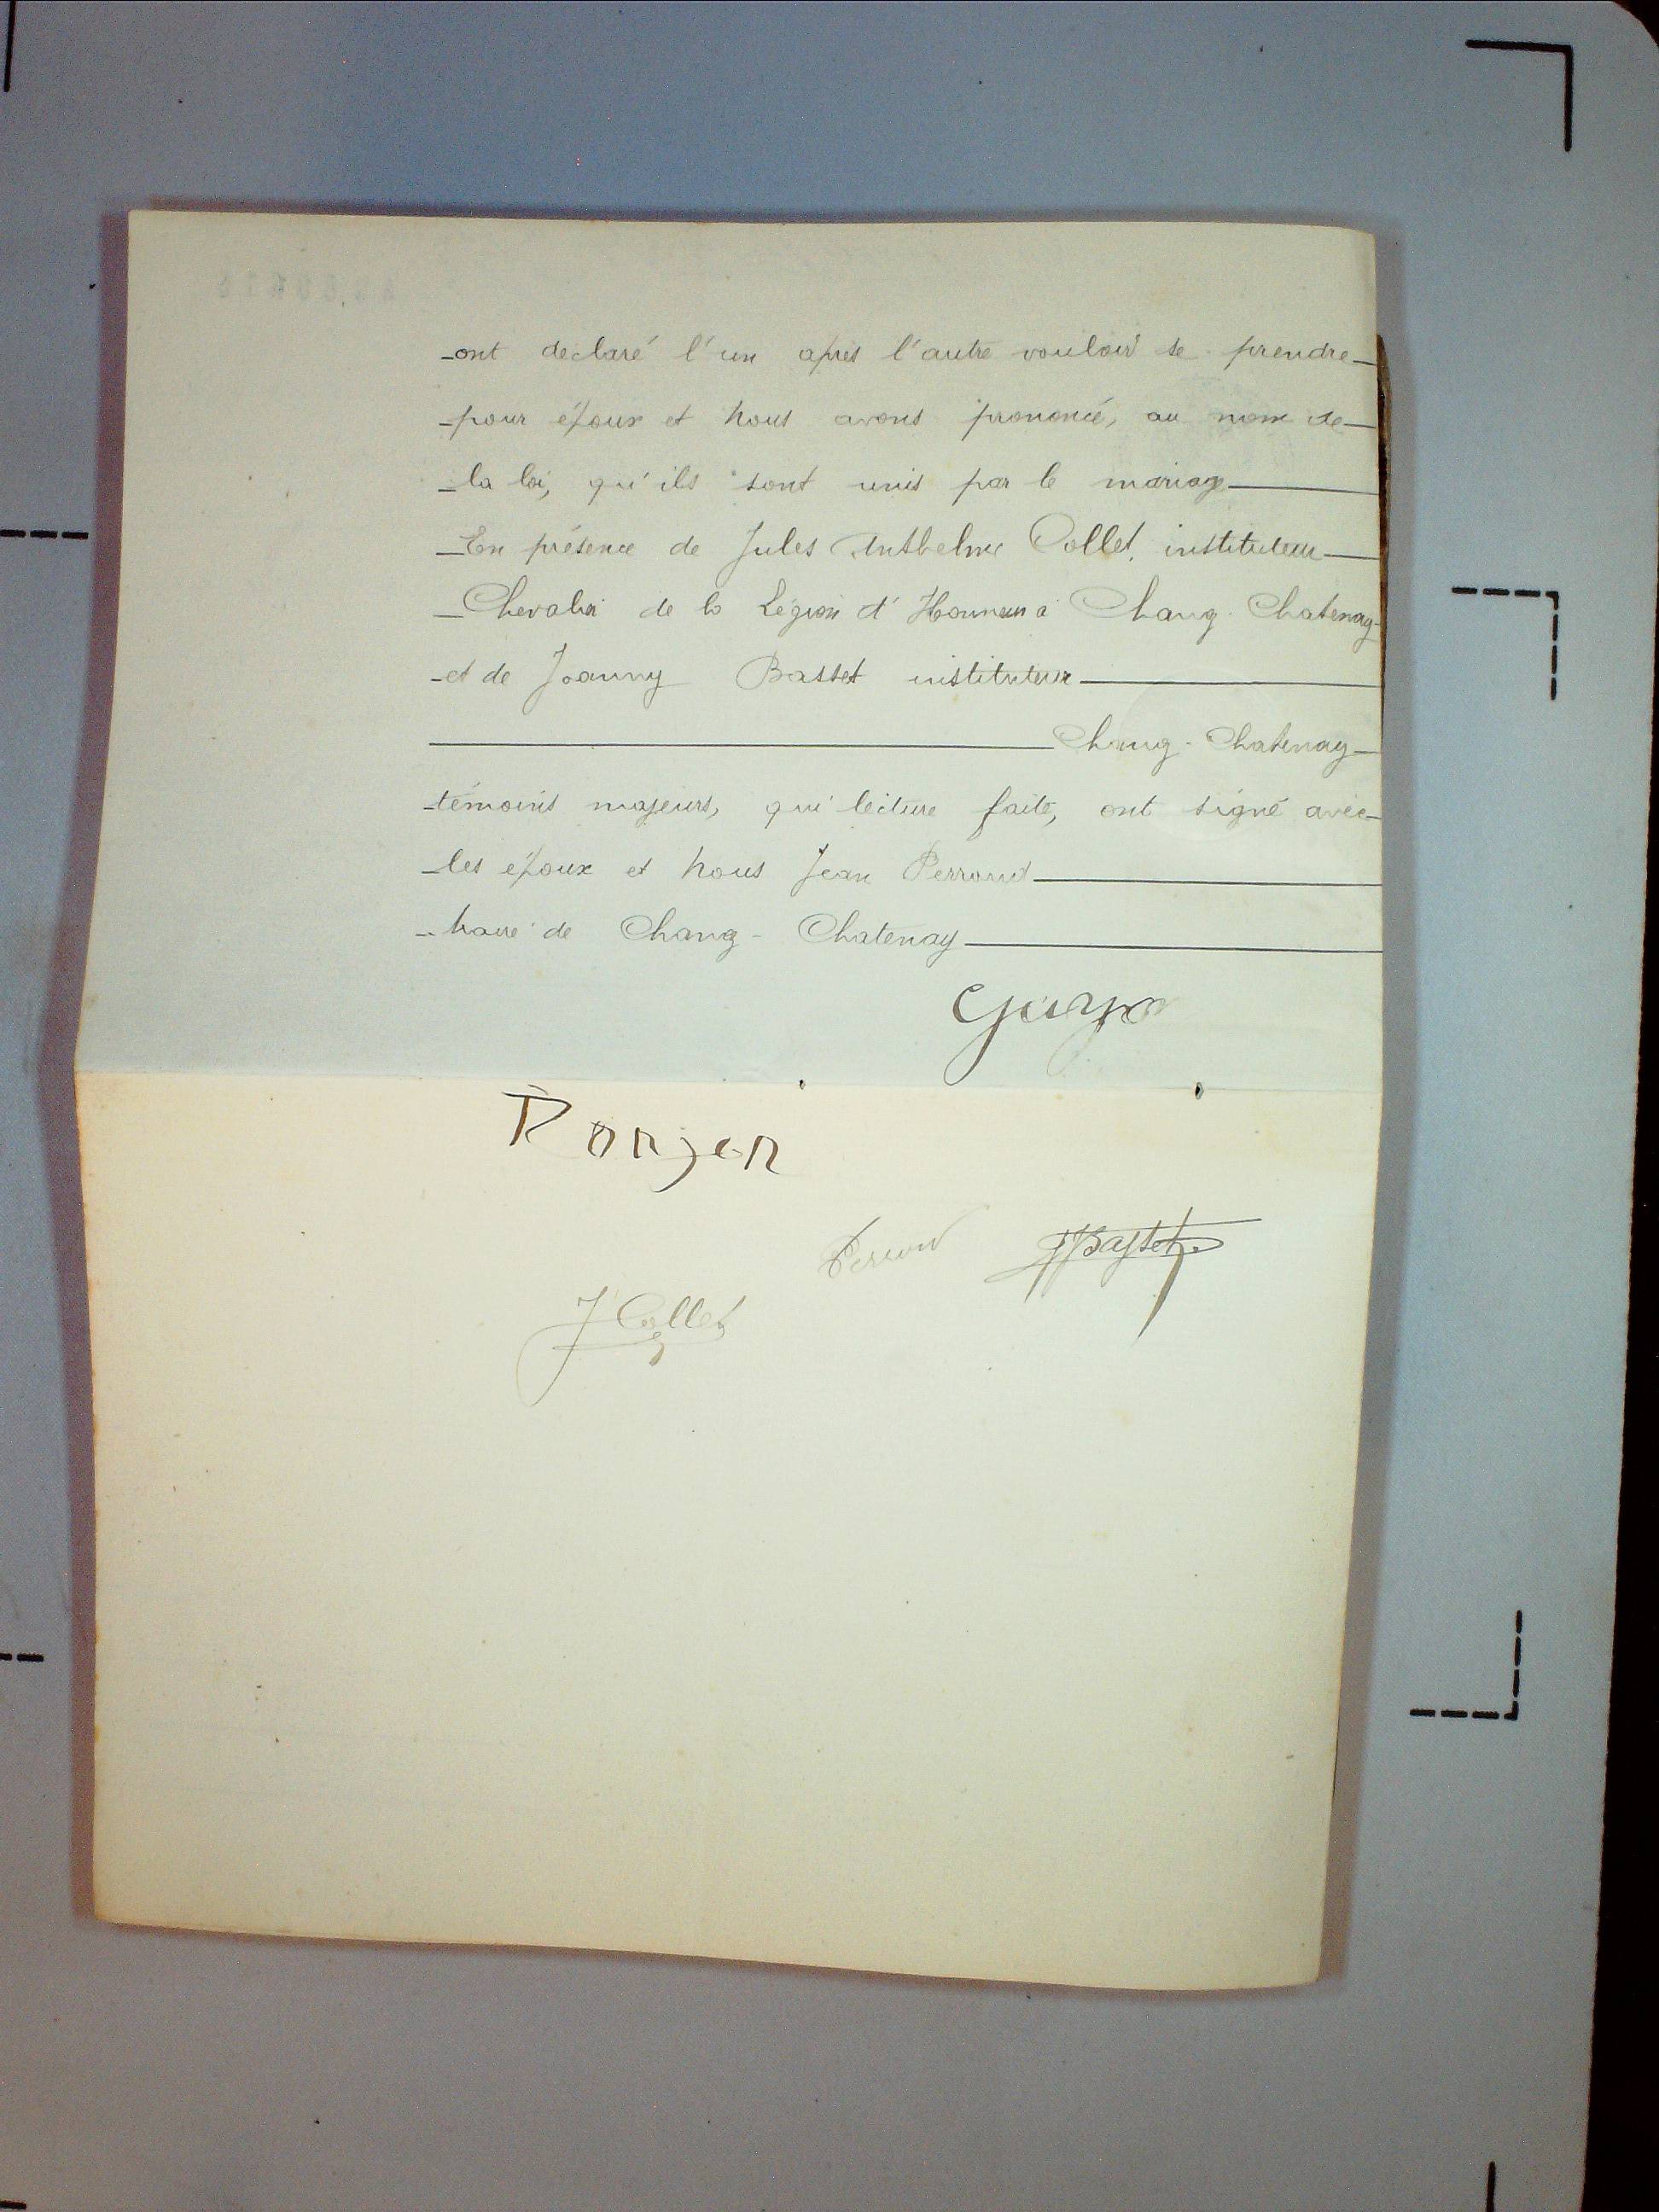 ont declaré l'un apres l'autre vouloir se prendre
pour époux et nous avons prononcé, au nom de
la loi, qu'ils sont unis par le mariage
En présence de Jules Anthelme Collet, instituteur
Chevalier de la Légion d'Honneur à Chang-Chatenay
et de Joanny Basset instituteur
Chang-Chatenay
témoins majeurs, qui lecture faite, ont signé avec
les époux et nous Jean Perroud
Maire de Chang-Chatenay
Ronjon
Perroud JBasset
J Collet